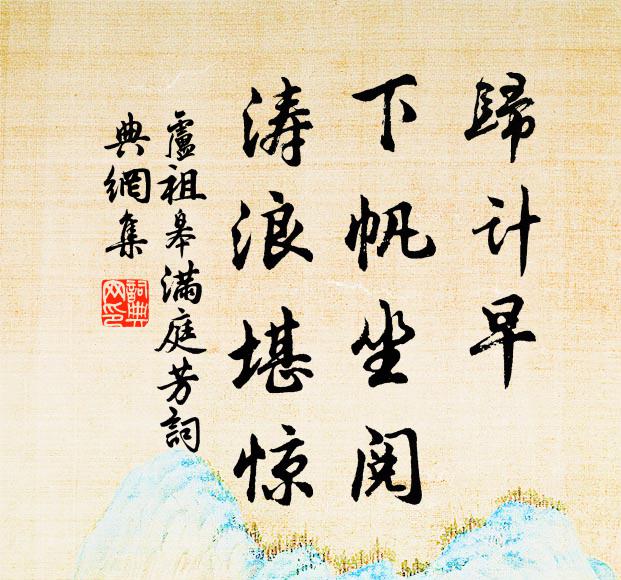 歸计早
下帆坐阅
涛浪堪惊
盧祖皋满庭芳詞
典網集
詞典
网印